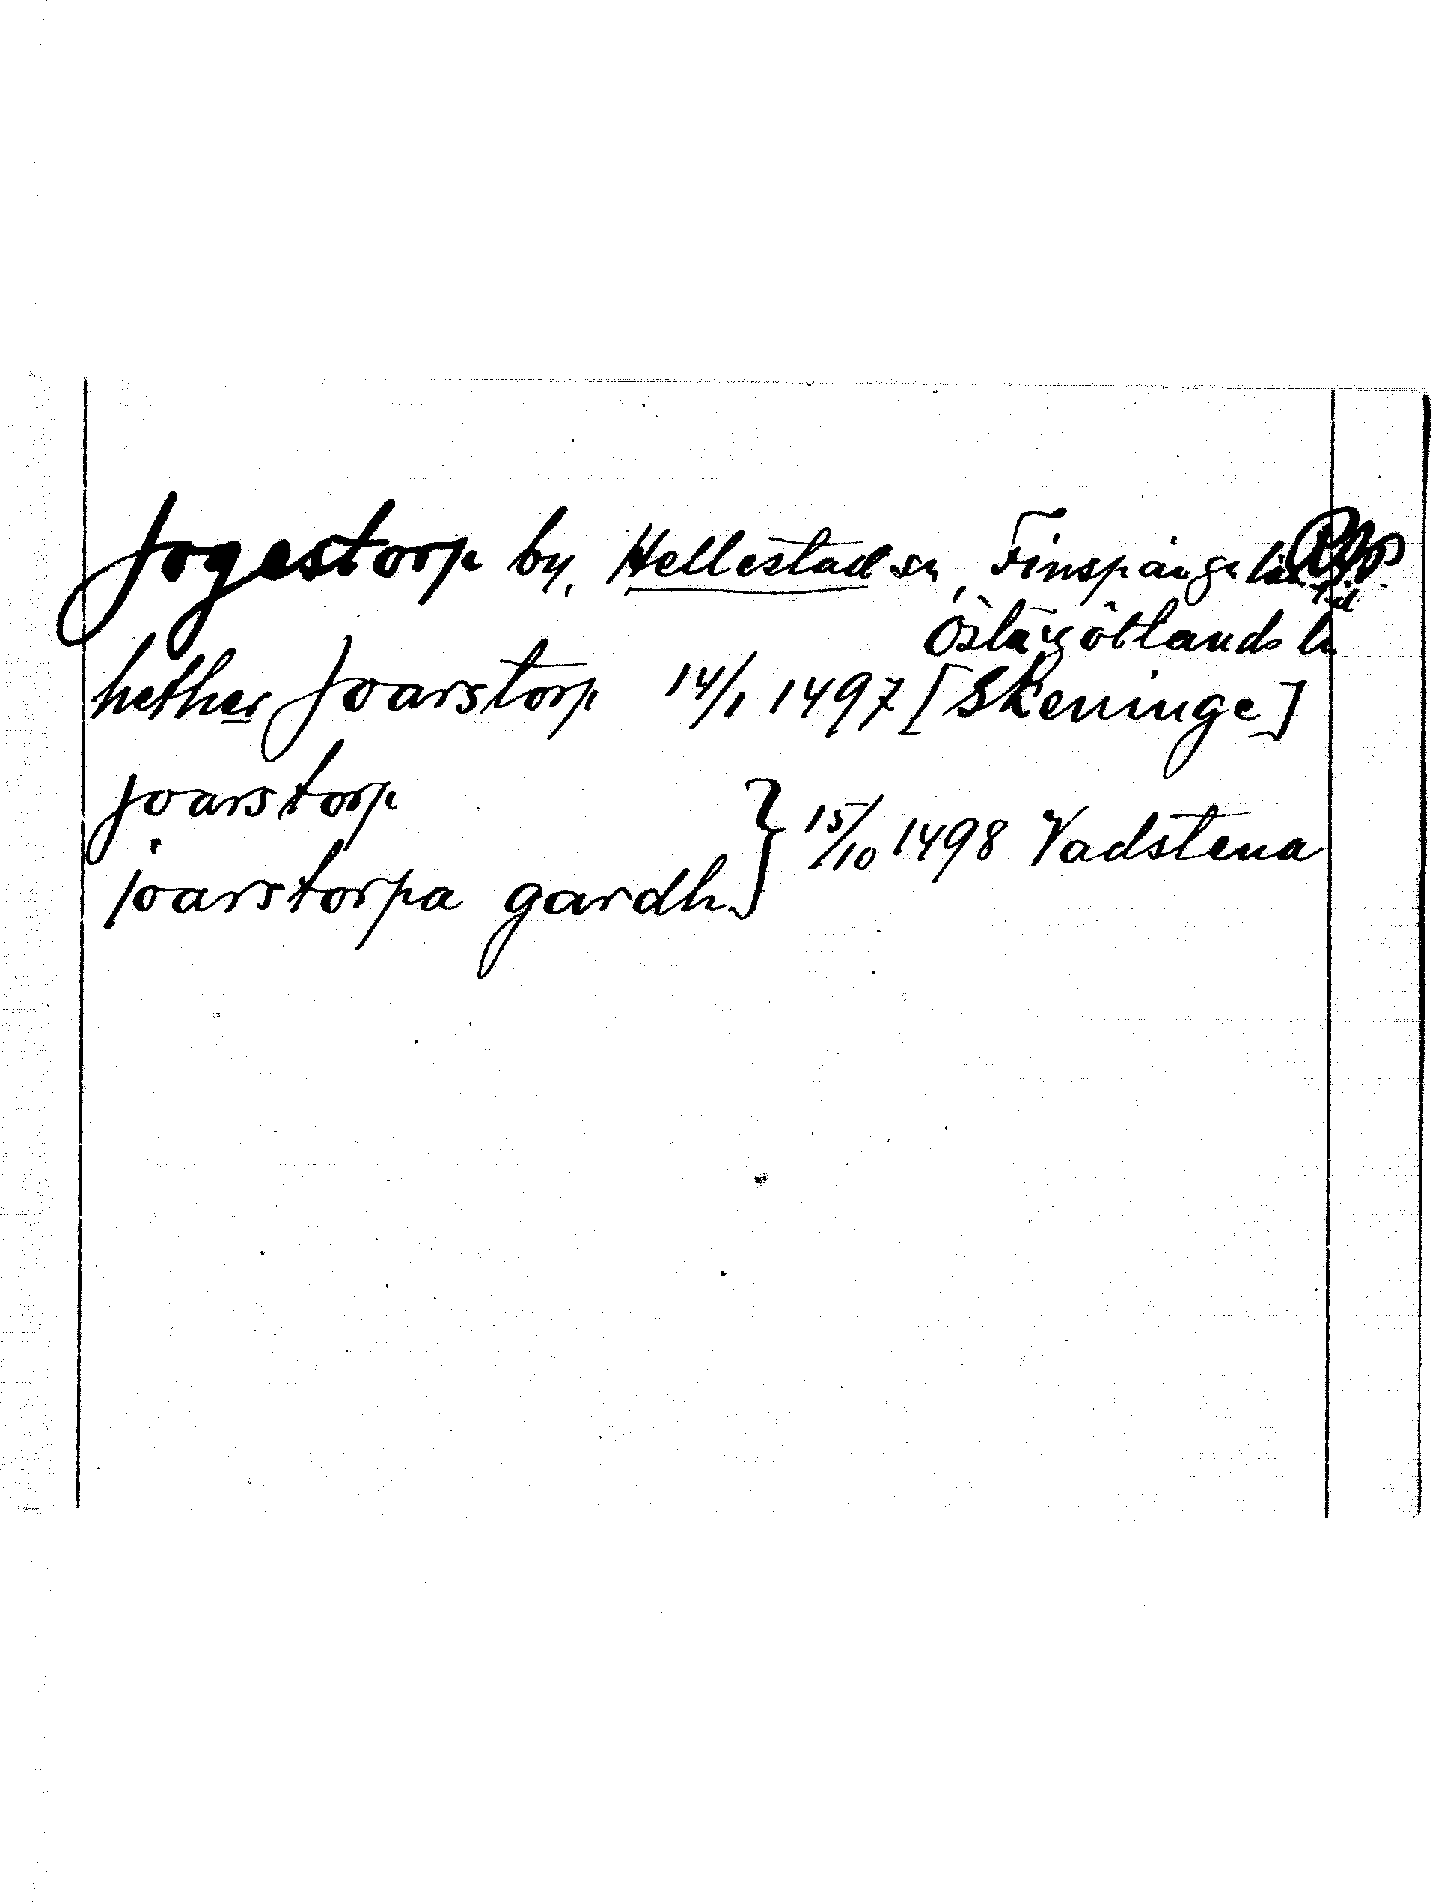 Jogestorp by, Hellestad sn, Finspånga län
Östergötlands ln
hether Joarstorp 14/1 1497 [Skeninge]
Joarstorp
joarstorpa gardh } 15/10 1498 Vadstena